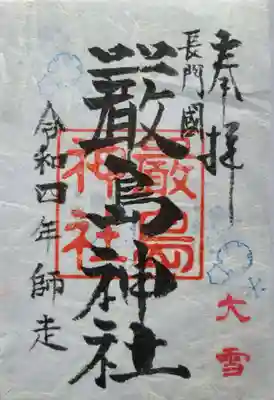 奉拝
長門國
嚴島神社
嚴島神社
令和四年 師走
大雪